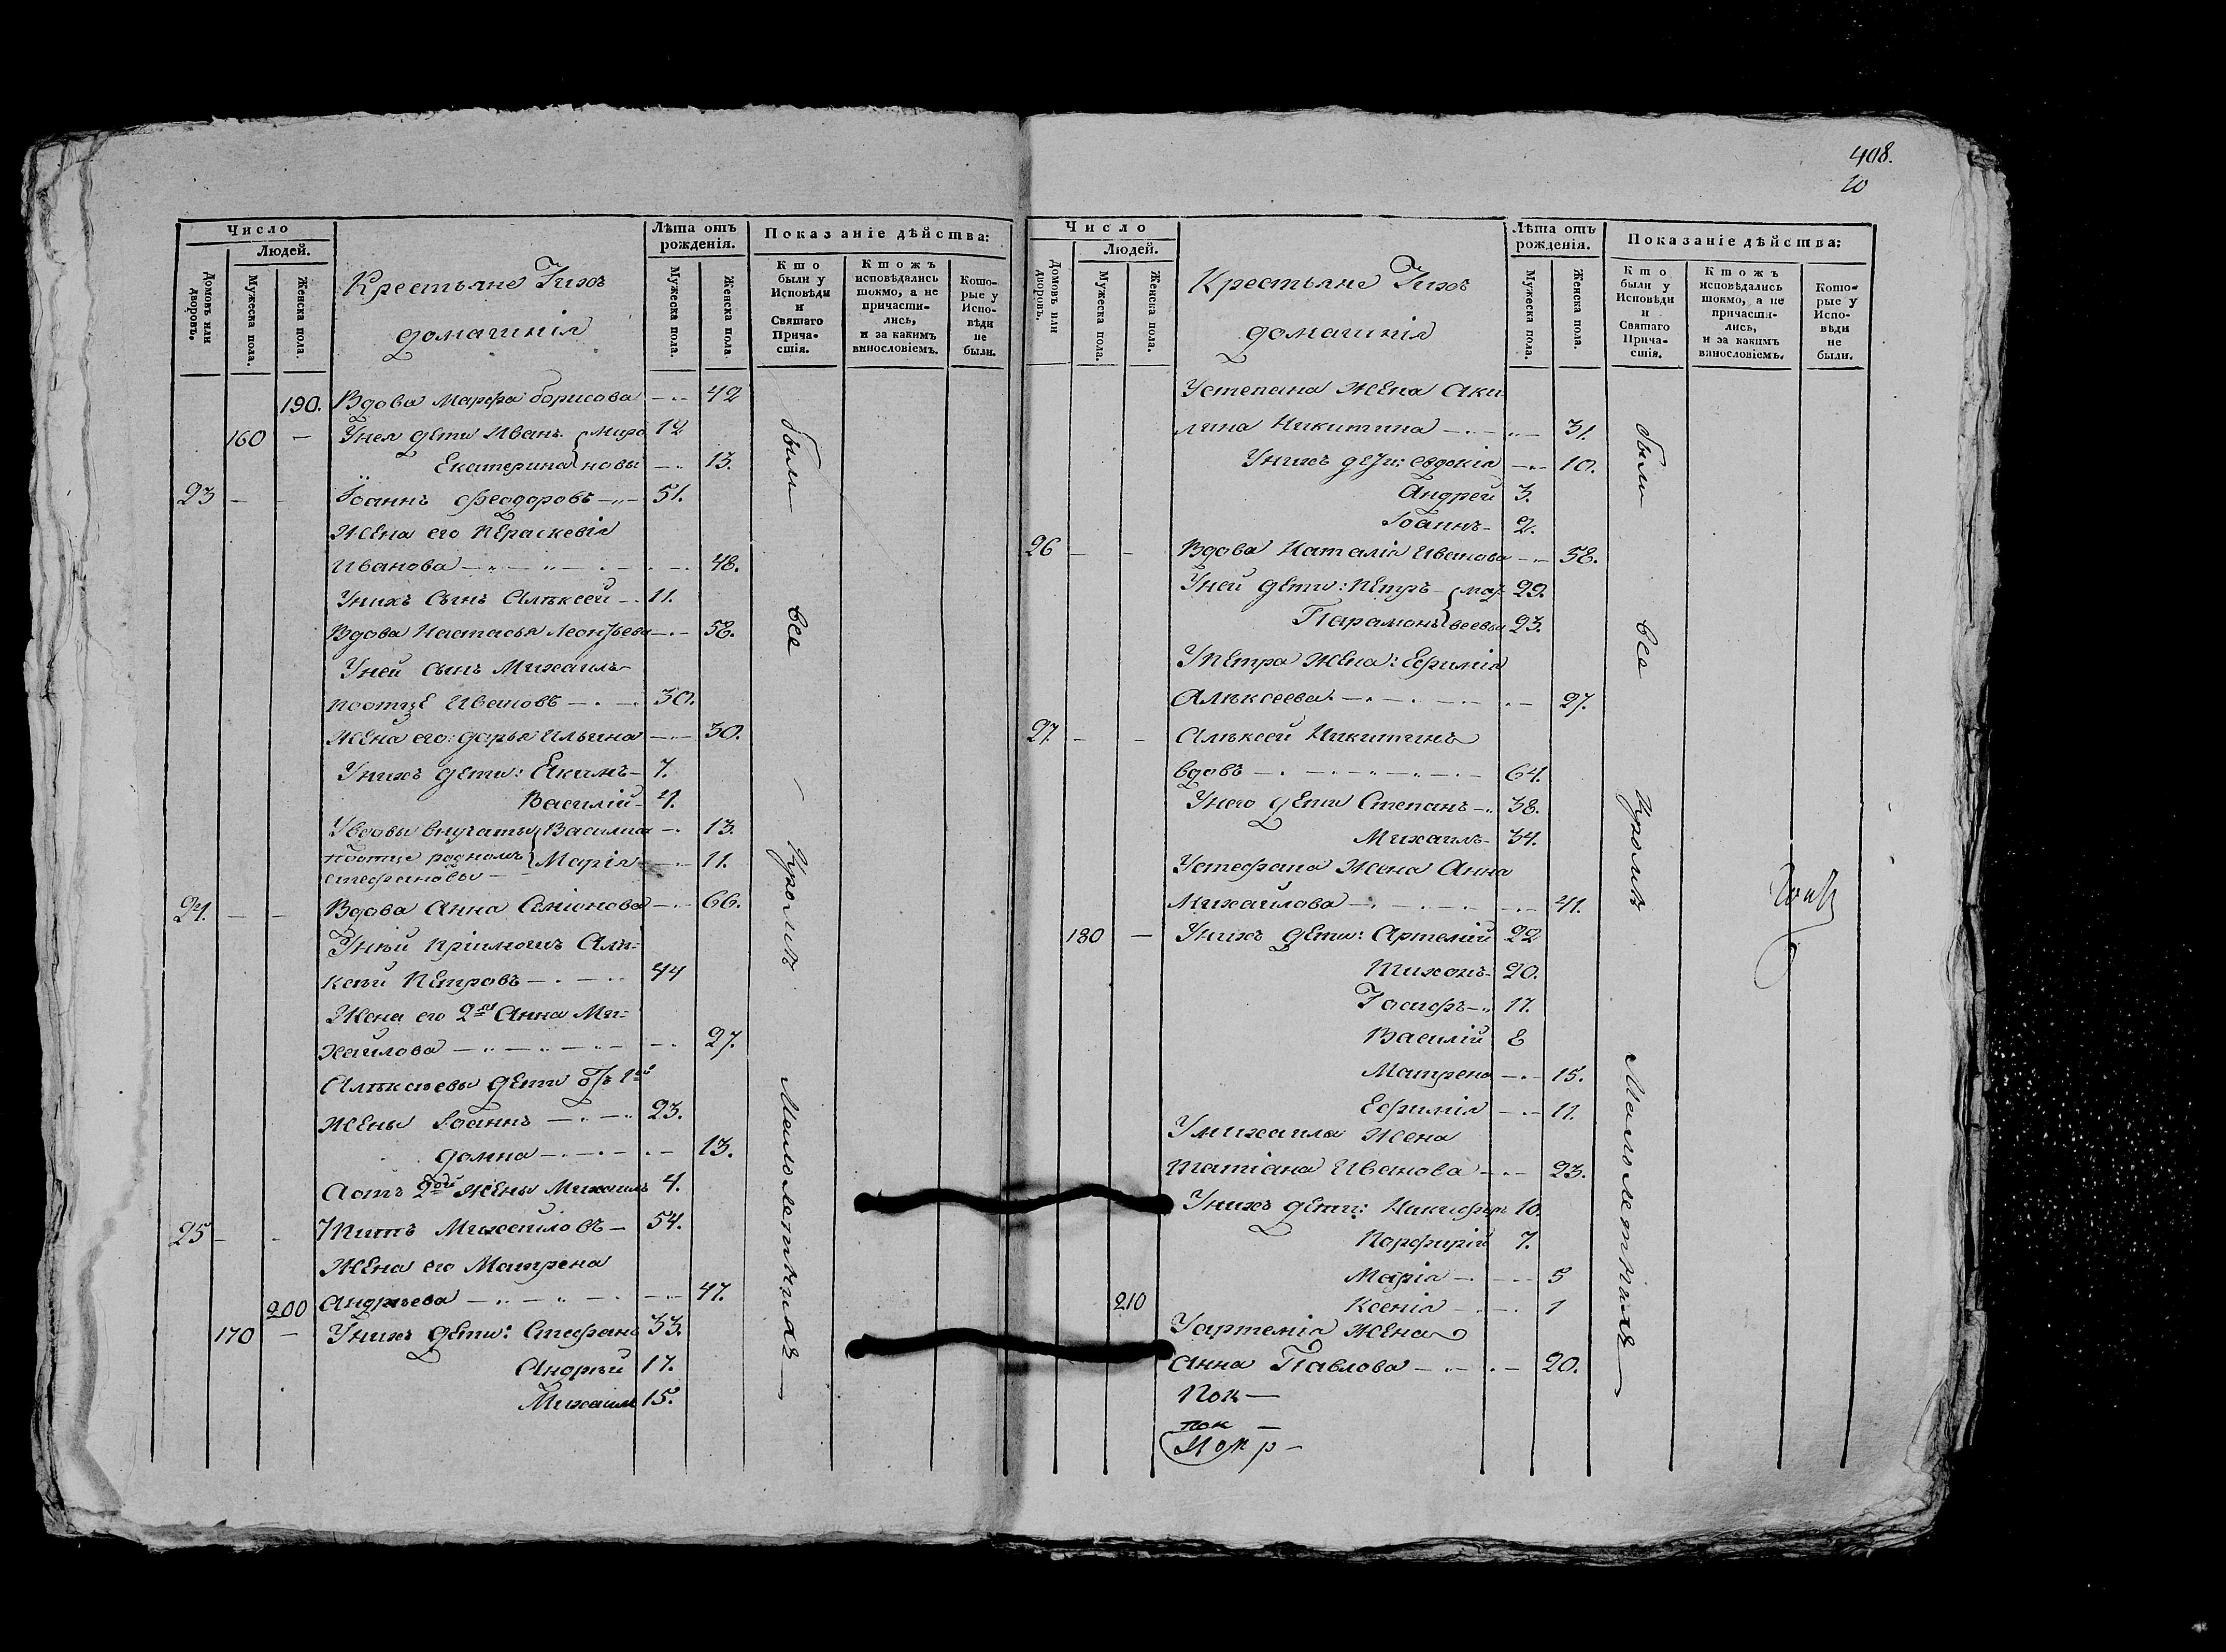 408.
10
Число
Людей.
Домовъ или дворовъ.
Мужеска пола.
Женска пола.
Крестьяне Ихъ
домашнія
Лѣта отъ рожденія.
Мужеска пола.
Женска пола.
Показаніе дѣйства:
Кто были у Исповѣди и Святаго Причастія.
Ктожъ исповѣдались токмо, а не причастились, и за какимъ винословіемъ.
Которые у Исповѣди не были.
190. Вдова Марфа Борисова 42
160 Унея дети Иванъ Миро 12
Екатерина новы 13.
23 Іоаннъ Феодоровъ 51.
Жена его Пераскевія
Иванова 48.
Унихъ Сынъ Алѣксей 11.
Вдова Настасья Леонтьева 58.
Уней сынъ Михаилъ
поотцѣ Ивановъ 30.
Жена его: Дарья Ильина 30.
Унихъ дети: Екимъ 7.
Василій 4.
Увдовы внучаты Василиса 13.
поотце родномъ Марія 11.
стефановы
24. Вдова Анна Симіонова 66.
Унѣй Пріимышъ Алѣ=
ксѣй Петровъ 44
Жена его 2я Анна Ми=
хайлова 27.
Алѣксѣевы дети отъ 1й
жены Іоаннъ 23.
Домна 13.
Аотъ 2ой жены Михаилъ 4.
25 Титъ Михайловъ 54.
Жена его Матрена
200 Андрѣева 47.
170 Унихъ дети: Стефанъ 33.
Андрѣй 17.
Михаилъ 15.
были все Кромѣ Малолетнихъ
Число
Людей.
Домовъ или дворовъ.
Мужеска пола.
Женска пола.
Крестьяне Ихъ
домашнія
Лѣта отъ рожденія.
Мужеска пола.
Женска пола.
Показаніе дѣйства:
Кто были у Исповѣди и Святаго Причастія.
Ктожъ исповѣдались токмо, а не причастились, и за какимъ винословіемъ.
Которые у Исповѣди не были.
Устепана Жена Аки
лина Никитина 31.
Унихъ дети: Евдокія 10.
Андрей 3.
Іоаннъ 2.
26 Вдова Наталія Иванова 58.
Уней дети: Петръ мат 29.
Парамонъ веевы 23.
Упетра жена: Ефимія
Алѣксеева 27.
27. Алѣксей Никитинъ
вдовъ 64.
Унего дети Степанъ 38.
Михаилъ 34.
Устефана Жена Анна
Михайлова 41.
180 Унихъ дети: Артемій 22
Тихонъ 20.
Іосифъ 17.
Василій 8
Матрена 15.
Ефимія 11.
Умихаила Жена
Татіана Иванова 23.
Унихъ дети: Никифоръ 10.
Порфирій 7.
Марія 5
210 Ксенія 1
Уартемія Жена
Анна Павлова 20.
Пок
пок
Покр
были все Кромѣ Малолетнихъ